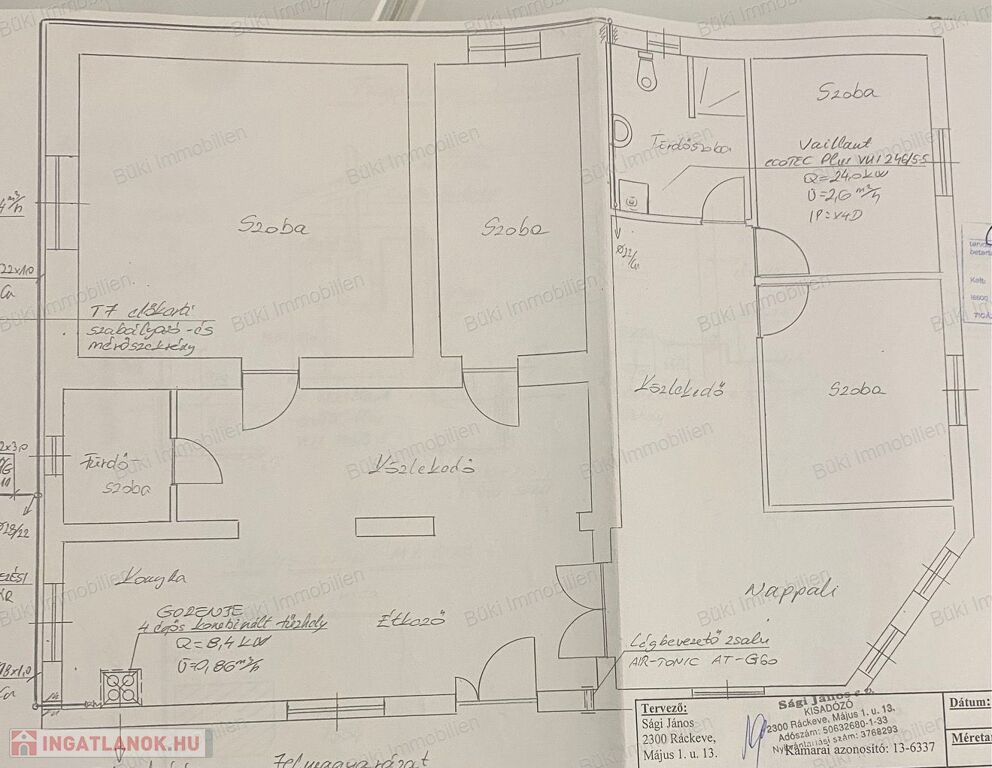 Szoba
Szoba
Fürdőszoba
Szoba
Vaillant
ecoTEC Plus VUI 246/5-5
Q=24,0 kW
Ü=2,6 m³/h
IP=X4D
4 m³/h
22x1,0
Cu
T7 előkerti
szabályozó- és
mérőszekrény
Ø22/Cu
Közlekedő
Szoba
Fürdő-
szoba
Közlekedő
Konyha
GORENJE
4 égős kombinált tűzhely
Q=8,4 kW
Ü=0,86 m³/h
Étkező
Nappali
Légbevezető zsalu
AIR-TONIC AT-G60
18x1,0
Cu
Tervező:
Sági János
2300 Ráckeve,
Május 1. u. 13.
Sági János e.v.
KISADÓZÓ
2300 Ráckeve, Május 1. u. 13.
Adószám: 50632680-1-33
Nyilvántartási szám: 3768293
Kamarai azonosító: 13-6337
Dátum:
Méretar
Kelt:
Felmagyarázat
INGATLANOK.HU
Büki Immobilien